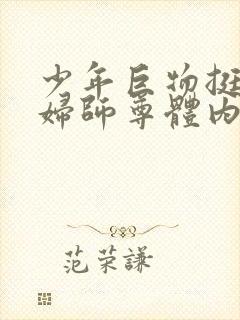 少年巨物挺
婦師尊體內
范荣謙